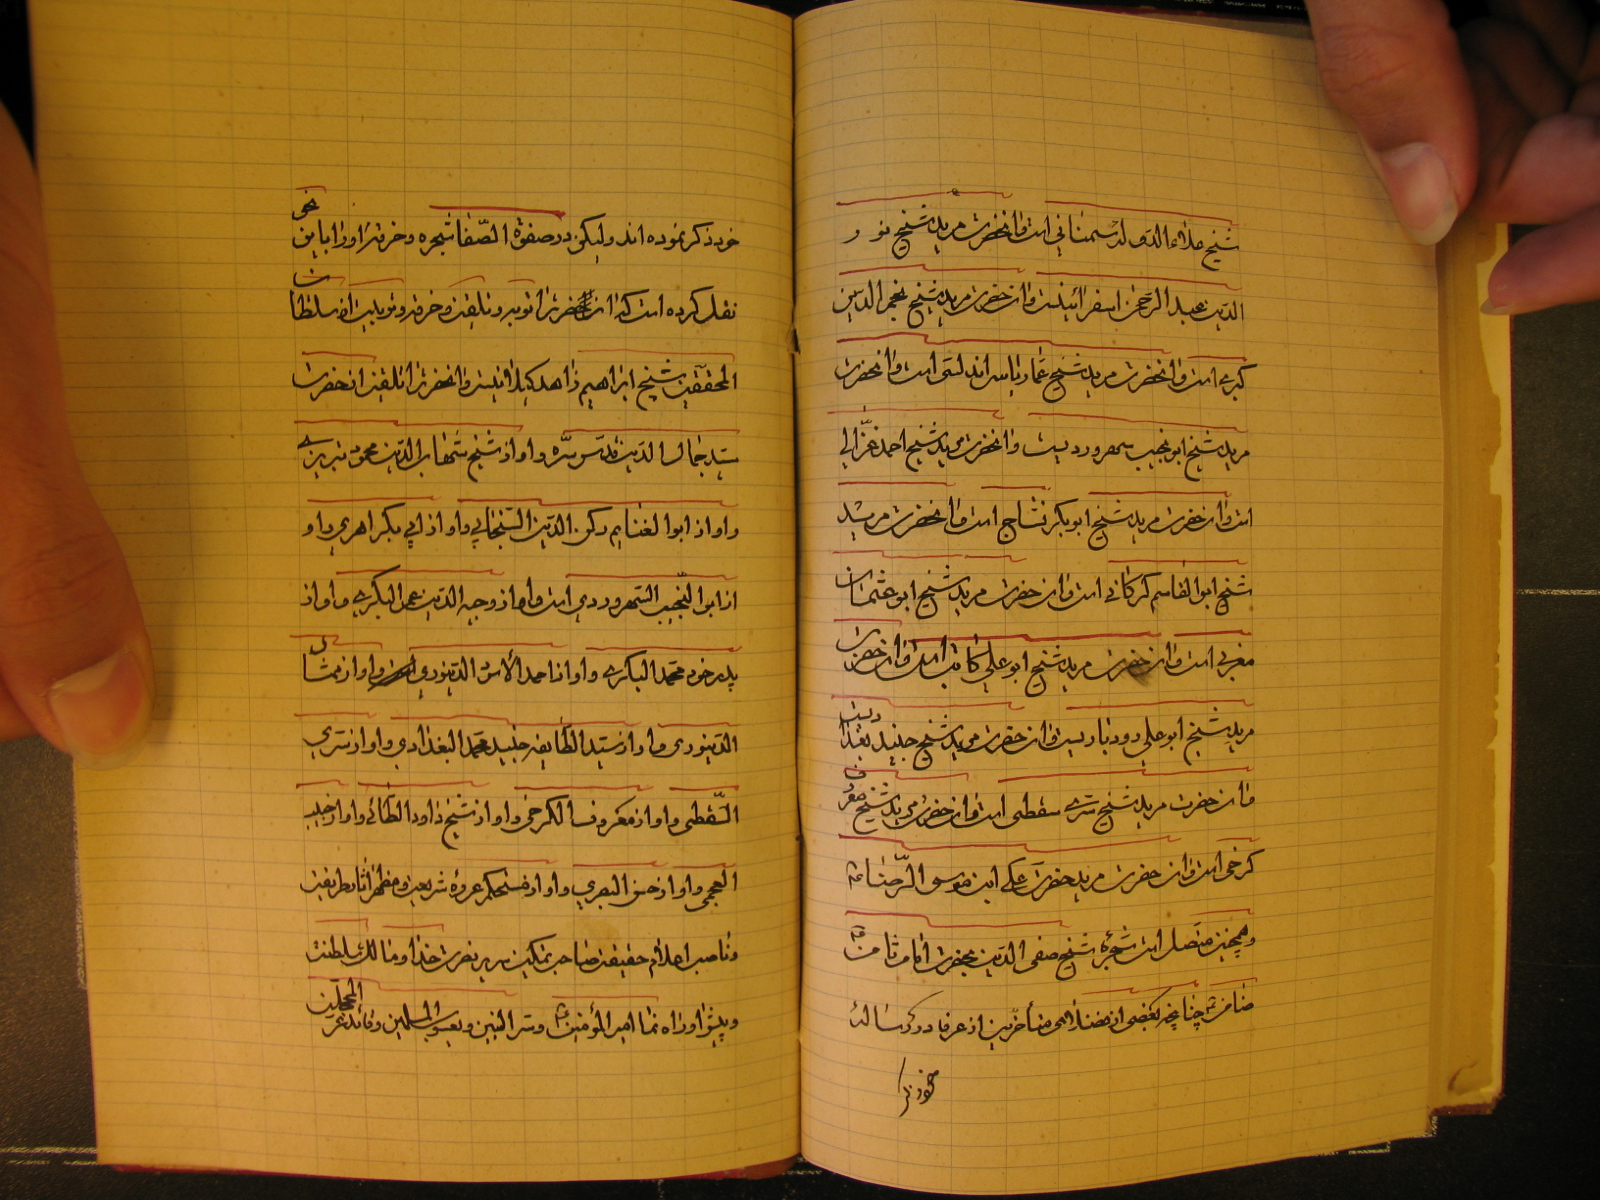 شیخ علاء الدوله سمنانی است و آنحضرت مرید شیخ نور
الدین عبد الرحمن اسفراینیست و آن حضرت مرید شیخ نجم الدین
کبری است و آنحضرت مرید شیخ عمار یاسر اندلسی است و آنحضرت
مرید شیخ ابو نجیب سهروردیست و آنحضرت مرید شیخ احمد غزّالی
است و آن حضرت مرید شیخ ابو بکر نساج است و آن حضرت مرید
شیخ ابو القاسم کرکانی است و آن حضرت مرید شیخ ابو عثمان
مغربی است و آن حضرت مرید شیخ ابو علی کاتب است و آن حضرت
مرید شیخ ابو علی رودباریست و آن حضرت مرید شیخ جنید بغدادیست
و آن حضرت مرید شیخ سری سقطی است و آن حضرت مرید شیخ معروف
کرخی است و آن حضرت مرید حضرت علی ابن موسی الرّضا ع
و همچنین متصل است شجره شیخ صفی الدین بحضرت امام ثامن
ضامن چنانچه بعضی از فضلای متأخرین از عرفا در رساله
خود ذکر
خود ذکر نموده اند ولیکن در صفوة الصّفا شجره و خرقه او را باین نحو
نقل کرده است که آن حضرت را توبه و تلقین و خرقه و تربیت از سلطان
المحققین شیخ ابراهیم زاهد کیلانیست و آنحضرت را تلقین از حضرت
سید جمال الدین قدّس سرّه و او از شیخ شهاب الدین محمود تبریزی
و او از ابوالغنایم رکن الدین السّنجانی و او از ابی بکر اهری و او
از ابو النّجیب السّهروردی است و او از وجیه الدین عمر البکری و او از
پدر خود محمد البکری و او از احمد الاسود الدینوری و او از ممشاد
الدینوری و او از سید الطّایفه جنید محمد البغدادی و او از سری
السّقطی و او از معروف الکرخی و او از شیخ داود الطّائی و او از حبیب
العجمی و او از حسن البصری و او از مستحکم عروه شریعت و مظهر آثار طریقت
و ناصب اعلام حقیقت صاحب تمکین سریر نصرت خدا و مالک سلطنت
و پیشوا و راه نما امیر المؤمنین و سر النبیین و یعسوب المسلمین و قائد غر المحجلین